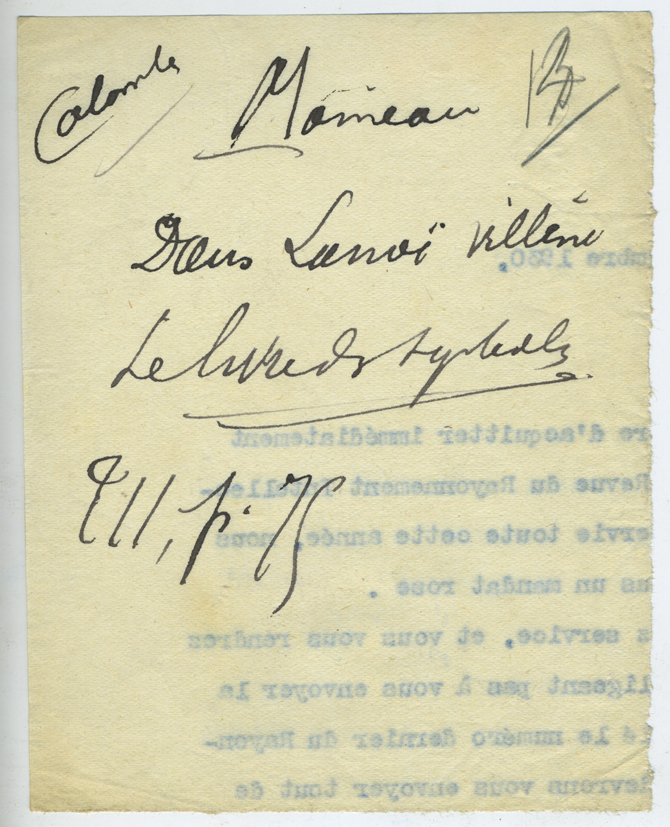 Colombe
Moineau
Dans Lanoë Villène
Le livre des symboles
T II, p. 75
mbre 1930.
re d'acquitter immédiatement
Revue du Rayonnement Intellec-
ervie toute cette année, nous
us un mandat rose .
s service, et vous vous rendrez
ligeant pas à vous envoyer le
le numéro dernier du Rayon-
devrons vous envoyer tout de